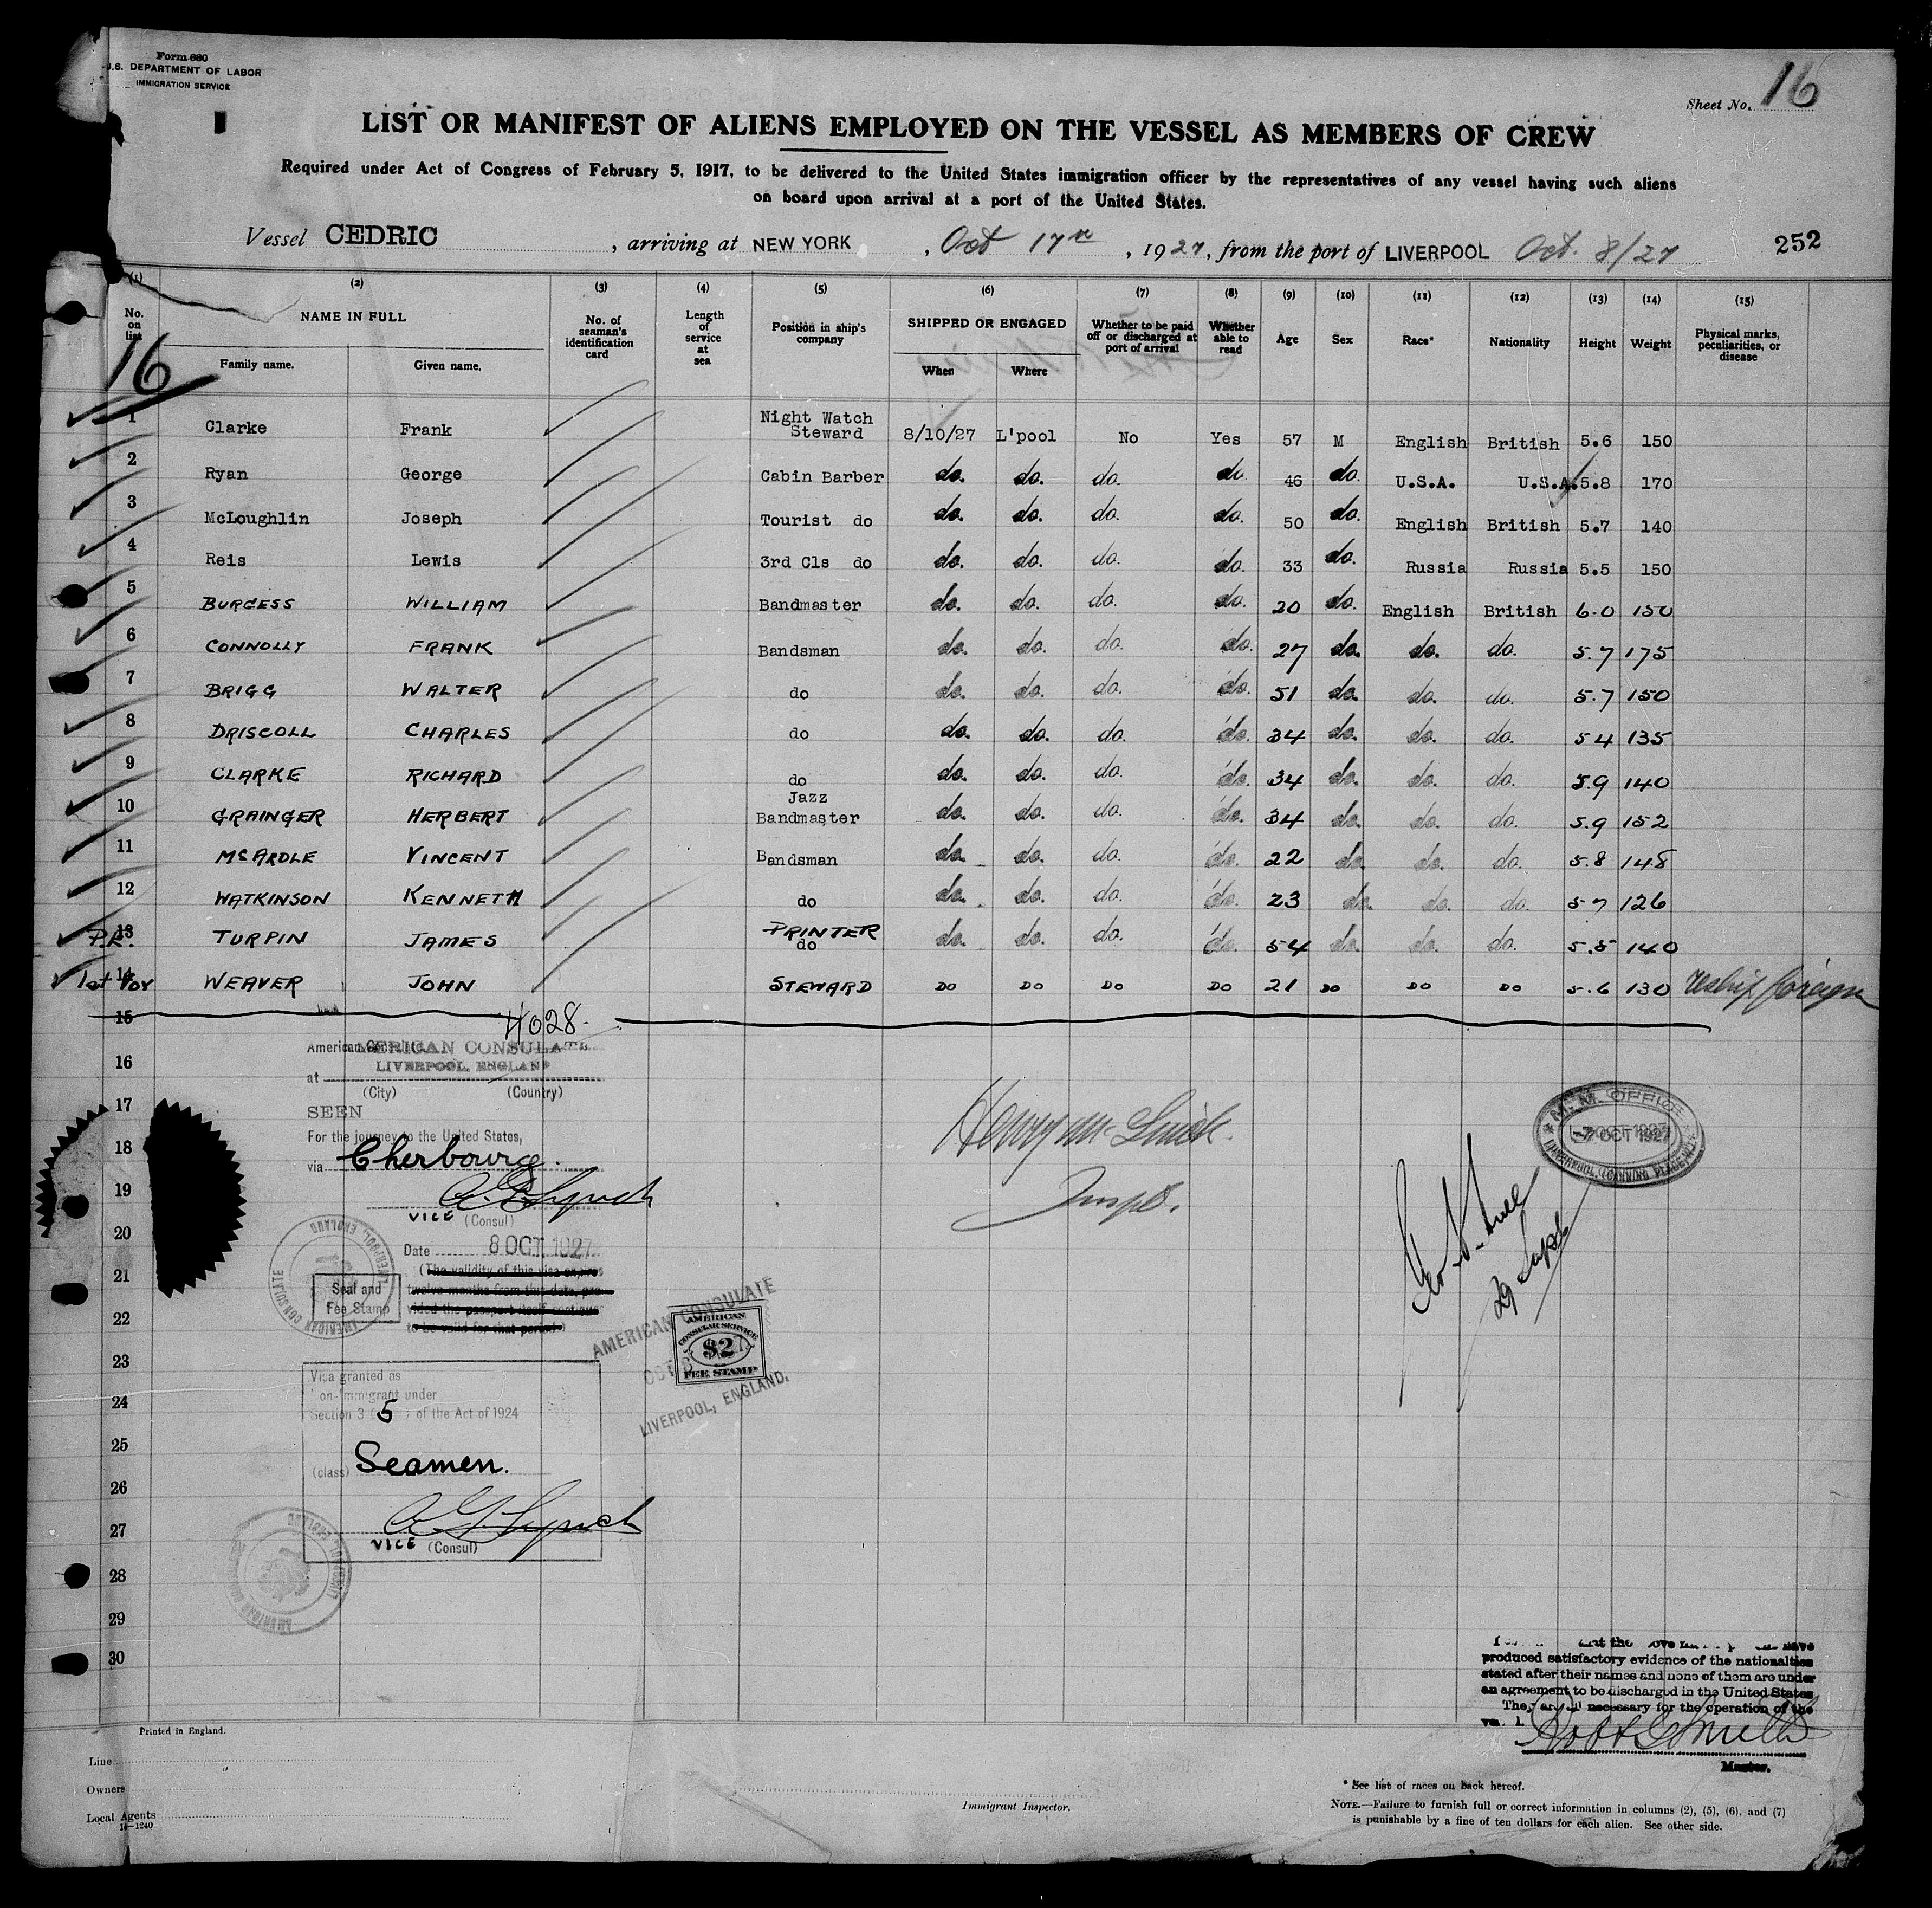 Form 680
U.S. DEPARTMENT OF LABOR
IMMIGRATION SERVICE
Sheet No. 16
LIST OR MANIFEST OF ALIENS EMPLOYED ON THE VESSEL AS MEMBERS OF CREW
Required under Act of Congress of February 5, 1917, to be delivered to the United States immigration officer by the representatives of any vessel having such aliens
on board upon arrival at a port of the United States.
Vessel CEDRIC, arriving at NEW YORK, Oct 17th, 1927, from the port of LIVERPOOL Oct. 8/27
252
(1) (2) (3) (4) (5) (6) (7) (8) (9) (10) (11) (12) (13) (14) (15)
No. on list NAME IN FULL No. of seaman's identification card Length of service at sea Position in ship's company SHIPPED OR ENGAGED Whether to be paid off or discharged at port of arrival Whether able to read Age Sex Race* Nationality Height Weight Physical marks, peculiarities, or disease
Family name. Given name. When Where
16
1 Clarke Frank Night Watch Steward 8/10/27 L'pool No Yes 57 M English British 5.6 150
2 Ryan George Cabin Barber do. do. do. do 46 do. U.S.A. U.S.A. 5.8 170
3 McLoughlin Joseph Tourist do do. do. do. do. 50 do. English British 5.7 140
4 Reis Lewis 3rd Cls do do. do. do. do. 33 do. Russia Russia 5.5 150
5 BURGESS WILLIAM Bandmaster do. do. do. do. 20 do. English British 6.0 150
6 CONNOLLY FRANK Bandsman do. do. do. do. 27 do. do. do. 5.7 175
7 BRIGG WALTER do do. do. do. do. 51 do. do. do. 5.7 150
8 DRISCOLL CHARLES do do. do. do. do. 34 do. do. do. 5 4 135
9 CLARKE RICHARD do do. do. do. do. 34 do. do. do. 5.9 140
10 GRAINGER HERBERT Jazz Bandmaster do. do. do. do. 34 do. do. do. 5.9 152
11 McARDLE VINCENT Bandsman do. do. do. do. 22 do. do. do. 5.8 148
12 WATKINSON KENNETH do do. do. do. do. 23 do. do. do. 5 7 126
13 P.E. TURPIN JAMES PRINTER do do. do. do. do. 54 do. do. do. 5.5 140
14 1st Voy WEAVER JOHN STEWARD DO DO DO DO 21 DO DO DO 5.6 130 reship foreign
15
4028
16
American
AMERICAN CONSULATE
LIVERPOOL, ENGLAND
at
(City) (Country)
17
SEEN
For the journey to the United States,
18
via Cherbourg.
19
A G Lynch
VICE (Consul)
20
Date 8 OCT 1927
(The validity of this visa expires
21
twelve months from this date, pro-
vided the passport itself continue
to be valid for that period)
Seal and
Fee Stamp
AMERICAN CONSULATE
LIVERPOOL, ENGLAND
22
AMERICAN CONSULATE
OCT 8
LIVERPOOL, ENGLAND.
AMERICAN
CONSULAR SERVICE
$2
FEE STAMP
23
Visa granted as
non-immigrant under
24
Section 3 (5) of the Act of 1924
25
(class) Seamen.
26
A G Lynch
27
VICE (Consul)
AMERICAN CONSULATE
LIVERPOOL, ENGLAND
28
29
30
Inspr.
M. M. OFFICE
-7 OCT 1927
LIVERPOOL, CANNING PLACE
produced satisfactory evidence of the nationalties
stated after their names and none of them are under
an agreement to be discharged in the United States
They are all necessary for the operation of the
Master.
Printed in England.
Line
Owners
Local Agents
14—1240
Immigrant Inspector.
* See list of races on back hereof.
NOTE.—Failure to furnish full or correct information in columns (2), (5), (6), and (7)
is punishable by a fine of ten dollars for each alien. See other side.